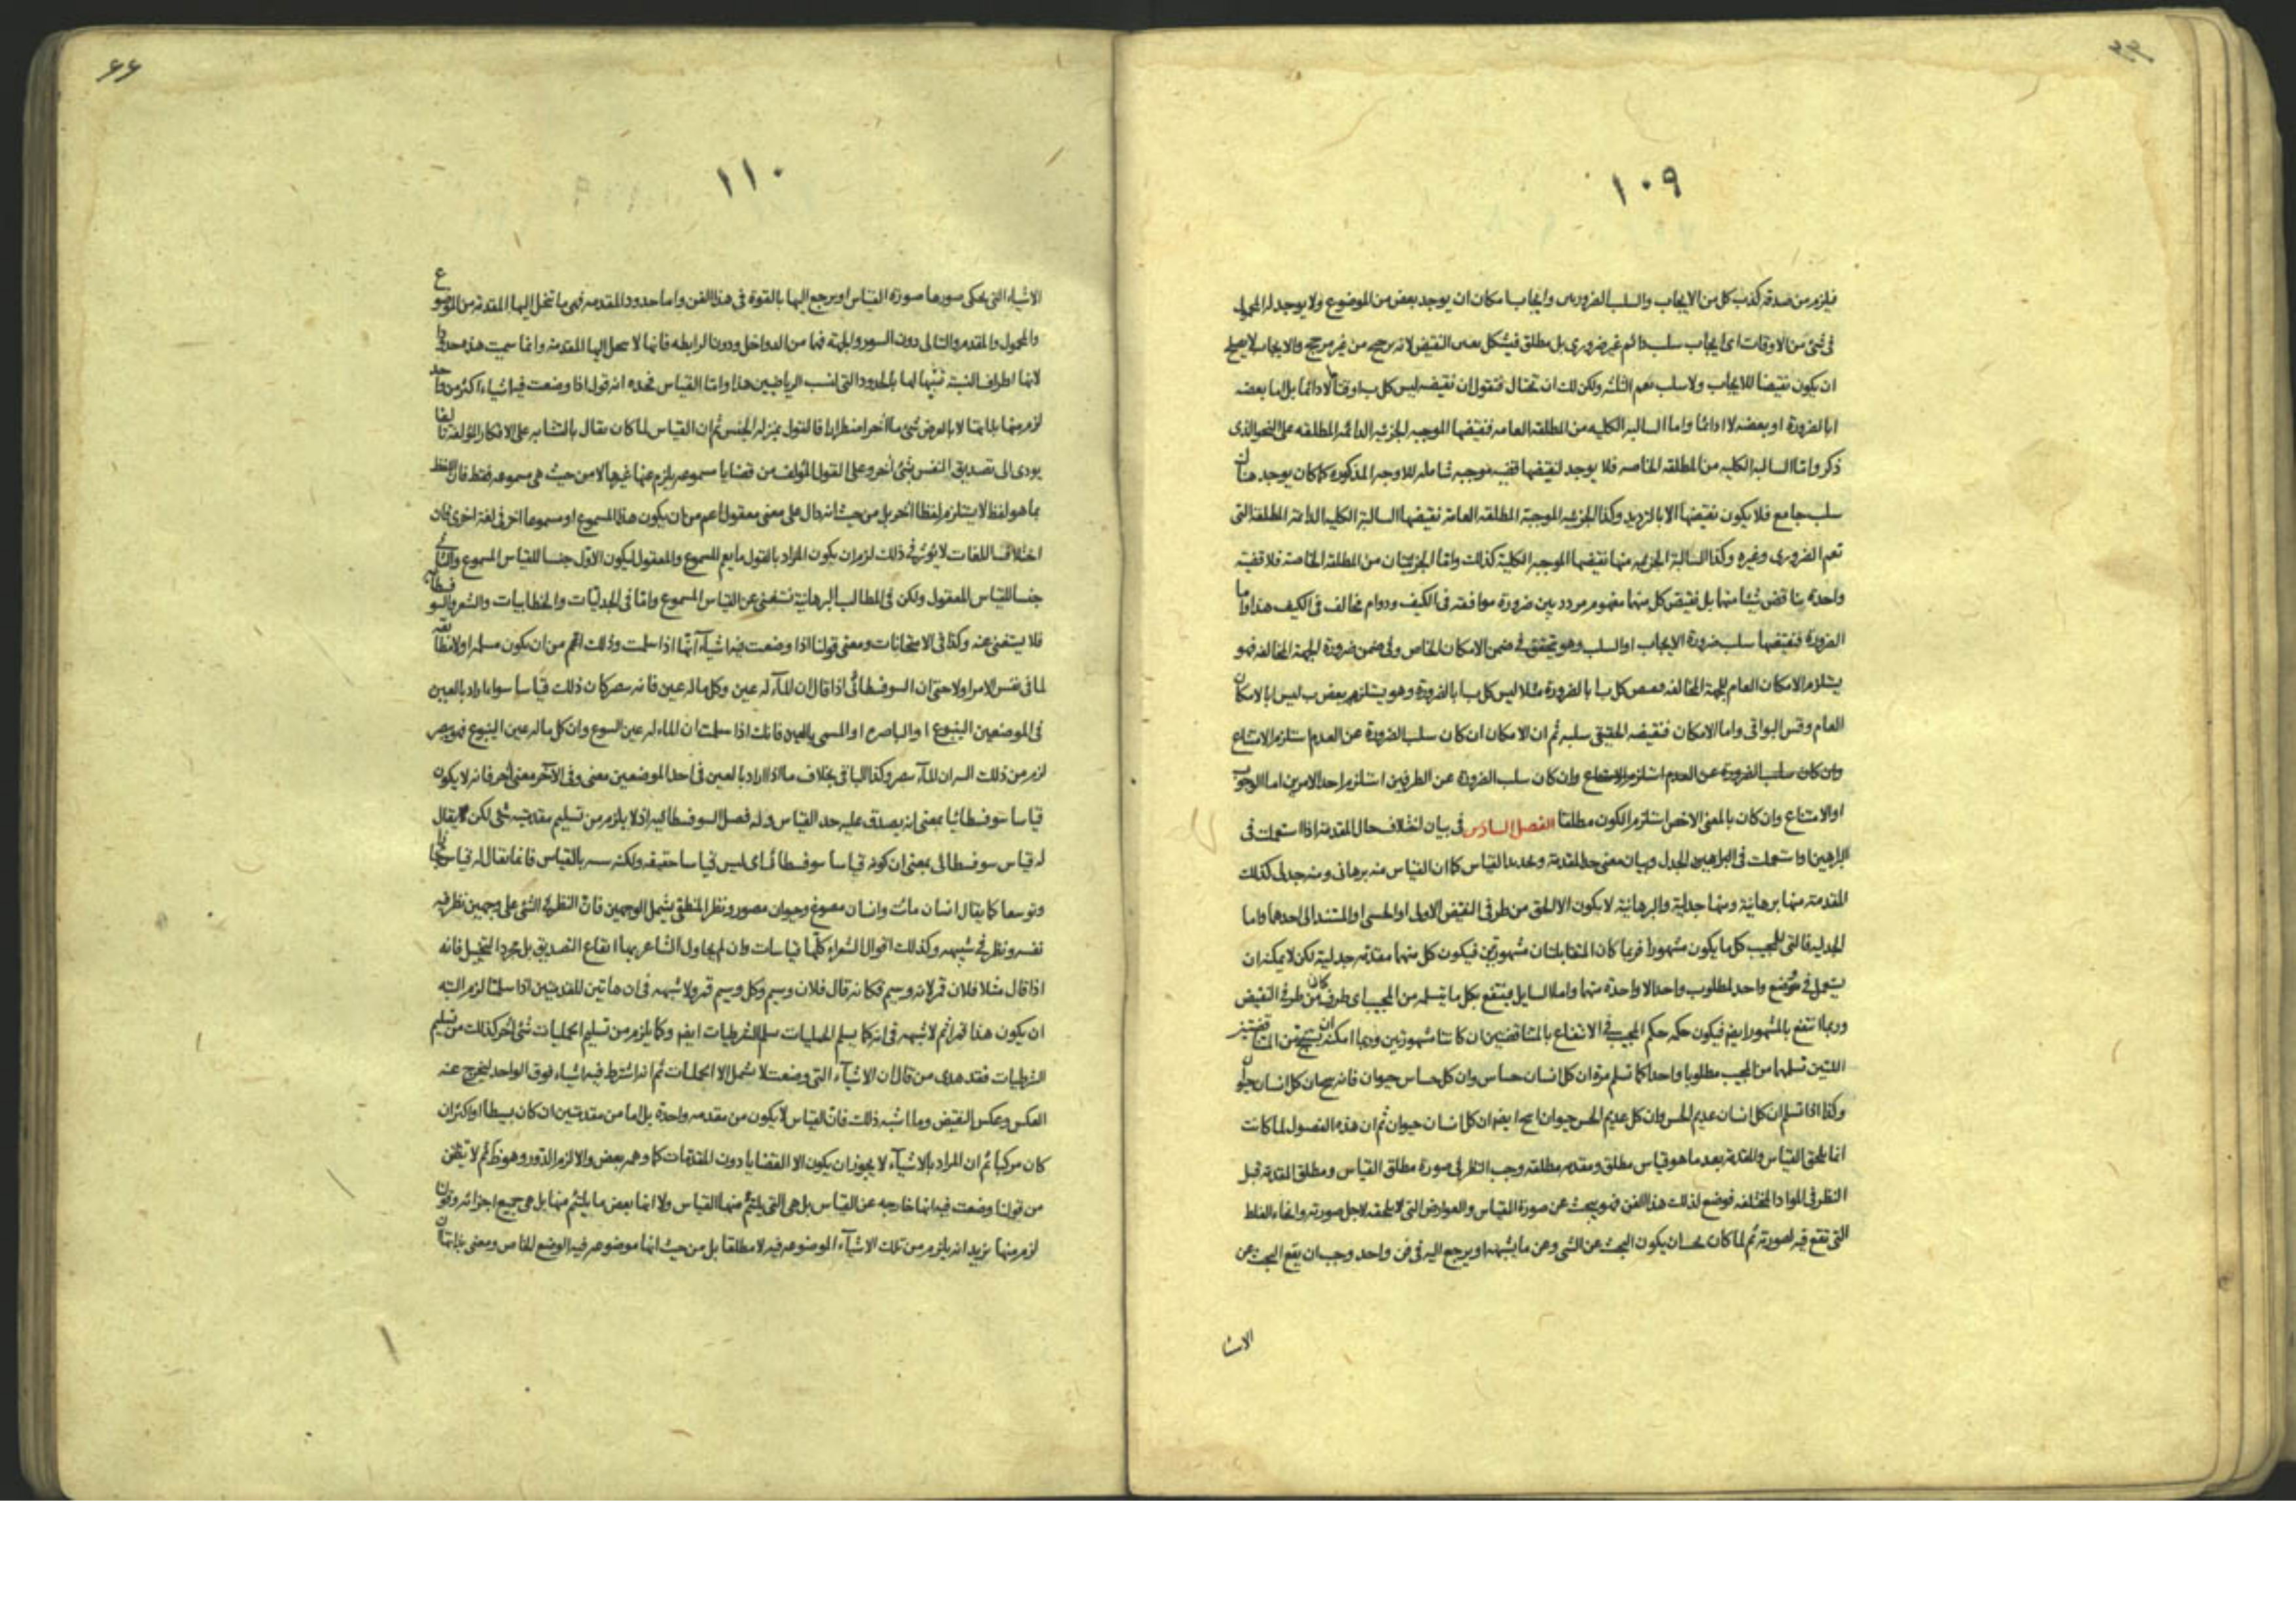 ١٠٩
فيلزم من صدقه كذب كل من الايجاب والسلب الضروريين وايجابا مكان ان يوجد بعض من الموضوع ولا يوجد له المحمول
فى شئ من الاوقات اى ايجاب سلب دائم غير ضرورى بل مطلق فيشكل النقيض لانه ترجيح من غير مرجح والايجاب لا يصلح
ان يكون نقيضا للايجاب ولا سلب يعم الثلثه ولكن لك ان تحتال فتقول ان نقيضه ليس كل ب ا وقتا لا دائما بل اما بعضه
ا بالضرورة او بعضه لا ا دائما واما السالبة الكليه من المطلقه العامه فنقيضها الموجبه الجزئيه الدائمة المطلقه على النحو الذى
ذكر واما السالبة الكليه من المطلقه الخاصه فلا يوجد لنقيضها قضيه موجبه شامله للاوجه المذكوره كما كان يوجد هناك
سلب جامع فلا يكون نقيضها الا بالترديد وكذا الجزئيه الموجبة المطلقه العامة نقيضها السالبة الكليه الدائمة المطلقة التى
تعم الضرورى وغيره وكذا السالبة الجزئيه منها نقيضها الموجبه الكلية كذلك واما الجزئيتان من المطلقة الخاصة فلا قضية
واحدة يناقض شيئا منها بل نقيض كل منها مفهوم مردد بين ضرورة موافقه فى الكيف ودوام مخالف فى الكيف هذا واما
الضرورة فنقيضها سلب ضرورة الايجاب او السلب وهو يتحقق فى ضمن الامكان الخاص وفى ضمن ضرورة الجهة المخالفه فهو
يستلزم الامكان العام للجهة المخالفه فنقيض كل ب ا بالضرورة مثلا ليس كل ب ا بالضرورة وهو يستلزم بعض ب ليس ا بالامكان
العام وقس البواقى واما الامكان فنقيضه الحقيقى سلبه ثم ان الامكان ان كان سلب الضرورة عن العدم استلزم الامتناع
وان كان سلب الضرورة عن العدم استلزم الامتناع وان كان سلب الضرورة عن الطرفين استلزم احد الامرين اما الوجوب
او الامتناع وان كان بالمعنى الاخص استلزم الكون مطلقا الفصل السادس فى بيان اختلاف حال المقدمة اذا استعملت فى
البراهين واستعملت فى الجدل وبيان معنى حد المقدمة وتحديد القياس كما ان القياس منه برهانى ومنه جدلى كذلك
المقدمة منها برهانية ومنها جدلية والبرهانية لا يكون الا الحق من طرفى النقيض الاولى او الحسى او المستند الى احدهما واما
الجدليه فالتى للمجيب كل ما يكون مشهورا فربما كان المتقابلتان مشهورتين فيكون كل منهما مقدمه جدلية لكن لا يمكنه ان
يستعمل فى موضع واحد لمطلوب واحد الا واحدة منهما واما السايل ينتفع بكل ما يتسلمه من المجيب اى طرف كان من طرفى النقيض
وربما انتفع بالمشهور ايضا فيكون حكمه حكم المجيب فى الانتفاع بالمتناقضين ان كانتا مشهورتين وربما امكنه ان ينتج من المتناقضتين
اللتين تسلمها من المجيب مطلوبا واحدا كما تسلم مرة ان كل انسان حساس وان كل حساس حيوان فانتج ان كل انسان حيوان
وكذا اذا تسلم ان كل انسان عديم الحس وان كل عديم الحس حيوان انتج ايضا ان كل انسان حيوان ثم ان هذه الفصول لما كانت
انما يلحق القياس والمقدمة بعد ما هو قياس مطلق ومقدمه مطلقه وجب النظر فى صورة مطلق القياس ومطلق المقدمة قبل
النظر فى المواد المختلفه فوضع لذلك هذا الفن فهو يبحث عن صورة القياس والعوارض التى تلحقه لاجل صورته وانحاء الغلط
التى تقع فيه لصورته ثم لما كان يحسن ان يكون البحث عن الشى وعن ما يشبهه او يرجع اليه فى فن واحد وجب ان يقع البحث عن
الاشيا
٦٦
١١٠
الاشياء التى يحكى صورها صورة القياس او يرجع اليها بالقوة فى هذا الفن واما حدود المقدمه فهى ما تنحل اليها المقدمة من الموضوع
والمحمول والمقدم والتالى دون السور والجهة فهما من الدواخل ودون الرابطه فانها لا تنحل اليها المقدمة وانما سميت هذه حدودا
لانها اطراف النسبة تشبيها لها بالحدود التى لنسب الرياضيين هذا واما القياس فحده انه قول اذا وضعت فيه اشياء اكثر من واحد
لزم منها بذاتها لا بالعرض شئ ما آخر اضطرارا فالقول بمنزلة الجنس ثم ان القياس لما كان يقال بالتشابه على الافكار المؤلفة تاليفا
يودى الى تصديق النفس بشئ آخر وعلى القول المؤلف من قضايا مسموعه يلزم عنها غيرها لا من حيث هى مسموعه فقط فان اللفظ
بما هو لفظ لا يستلزم لفظا آخر بل من حيث انه دال على معنى معقول اعم من ان يكون هذا المسموع او مسموعا آخر فى لغة اخرى فان
اختلاف اللغات لا يؤثر فى ذلك لزم ان يكون المراد بالقول ما يعم المسموع والمعقول ليكون الاول جنسا للقياس المسموع والثانى
جنسا للقياس المعقول ولكن فى المطالب البرهانية يستغنى عن القياس المسموع واما فى الجدليات والخطابيات والشعر والسوفسطائيه
فلا يستغنى عنه وكذا فى الامتحانات ومعنى قولنا اذا وضعت فيه اشياء انها اذا سلمت وذلك اعم من ان يكون مسلمه اولا مطابقه
لما فى نفس الامر اولا حتى ان السوفسطائى اذا قال ان الماء له عين وكل ما له عين فانه يبصر كان ذلك قياسا سواء اراد بالعين
فى الموضعين الينبوع او الباصره او المسمى بالعين فانك اذا سلمت ان الماء له عين الينبوع وان كل ما له عين الينبوع فهو يبصر
لزم من ذلك ان الماء يبصر وكذا الباقى بخلاف ما اذا اراد بالعين فى احد الموضعين معنى وفى الآخر معنى آخر فانه لا يكون
قياسا سوفسطائيا بمعنى انه يصدق عليه حد القياس وله فصل السوفسطائيه اذ لا يلزم من تسليم مقدمتيه شئ لكن يقال
له قياس سوفسطائى بمعنى ان كونه قياسا سوفسطائى اى ليس قياسا حقيقه ولكنه يشبه بالقياس فانما يقال له قياس مجازا
وتوسعا كما يقال انسان مائت وانسان مصوغ وحيوان مصور ونظر المنطقى يشمل الوجهين فان النظر فى الشئ على وجهين نظر فيه
نفسه ونظر فى شبيهه وكذلك اقوال الشعراء كلها قياسات وان لم يحاول الشاعر بها ايقاع التصديق بل مجرد التخييل فانه
اذا قال مثلا فلان قمر لانه وسيم فكانه قال فلان وسيم وكل وسيم قمر ولا شبهه فى ان هاتين المقدمتين اذا سلمتا لزم البته
ان يكون هذا قمرا ثم لا شبهه فى انه كما يسلم الحمليات يسلم الشرطيات ايضا وكما يلزم من تسليم الحمليات شئ آخر كذلك من تسليم
الشرطيات فقد هذى من قال ان الاشياء التى وضعت لا تشمل الا الحمليات ثم انه اشترط فيه اشياء فوق الواحد ليخرج عنه
العكس وعكس النقيض وما اشبه ذلك فان القياس لا يكون من مقدمه واحدة بل اما من مقدمتين ان كان بسيطا او اكثر ان
كان مركبا ثم ان المراد بالاشياء لا يجوز ان يكون الا القضايا دون المقدمات كما وهمه بعض والا لزم الدور وهو خطا ثم لا تظنن
من قولنا وضعت فيه انها خارجه عن القياس بل هى التى يلتئم منها القياس ولا انها بعض ما يلتئم منها بل هى جميع اجزائه وقولنا
لزم منها نريد انه يلزم من تلك الاشياء الموضوعه فيه لا مطلقا بل من حيث انها موضوعه فيه الوضع الخاص ومعنى بذاتها